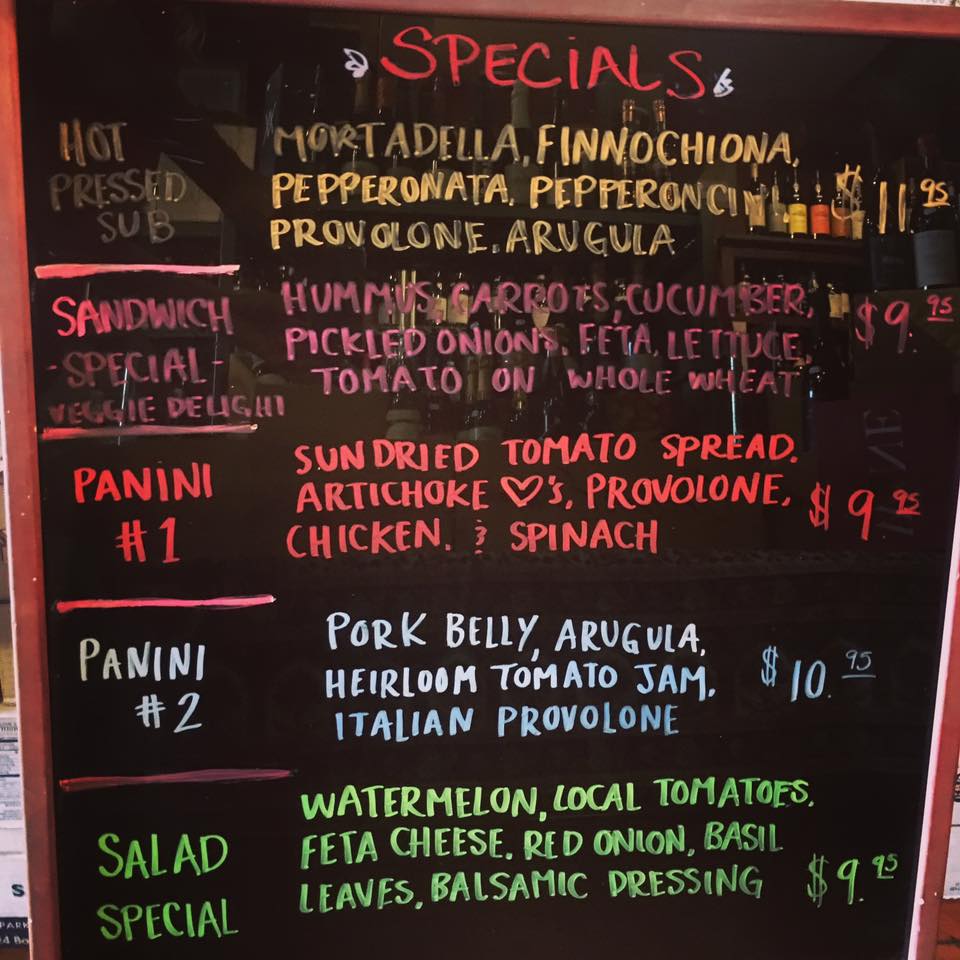 SPECIALS
HOT
PRESSED
SUB
MORTADELLA, FINNOCHIONA,
PEPPERONATA, PEPPERONCINI,
PROVOLONE, ARUGULA
$11.95
SANDWICH
-SPECIAL-
VEGGIE DELIGHT
HUMMUS, CARROTS, CUCUMBER,
PICKLED ONIONS, FETA, LETTUCE,
TOMATO ON WHOLE WHEAT
$9.95
PANINI
#1
SUNDRIED TOMATO SPREAD,
ARTICHOKE ♡'s, PROVOLONE,
CHICKEN, & SPINACH
$9.95
PANINI
#2
PORK BELLY, ARUGULA,
HEIRLOOM TOMATO JAM,
ITALIAN PROVOLONE
$10.95
SALAD
SPECIAL
WATERMELON, LOCAL TOMATOES,
FETA CHEESE, RED ONION, BASIL
LEAVES, BALSAMIC DRESSING
$9.95